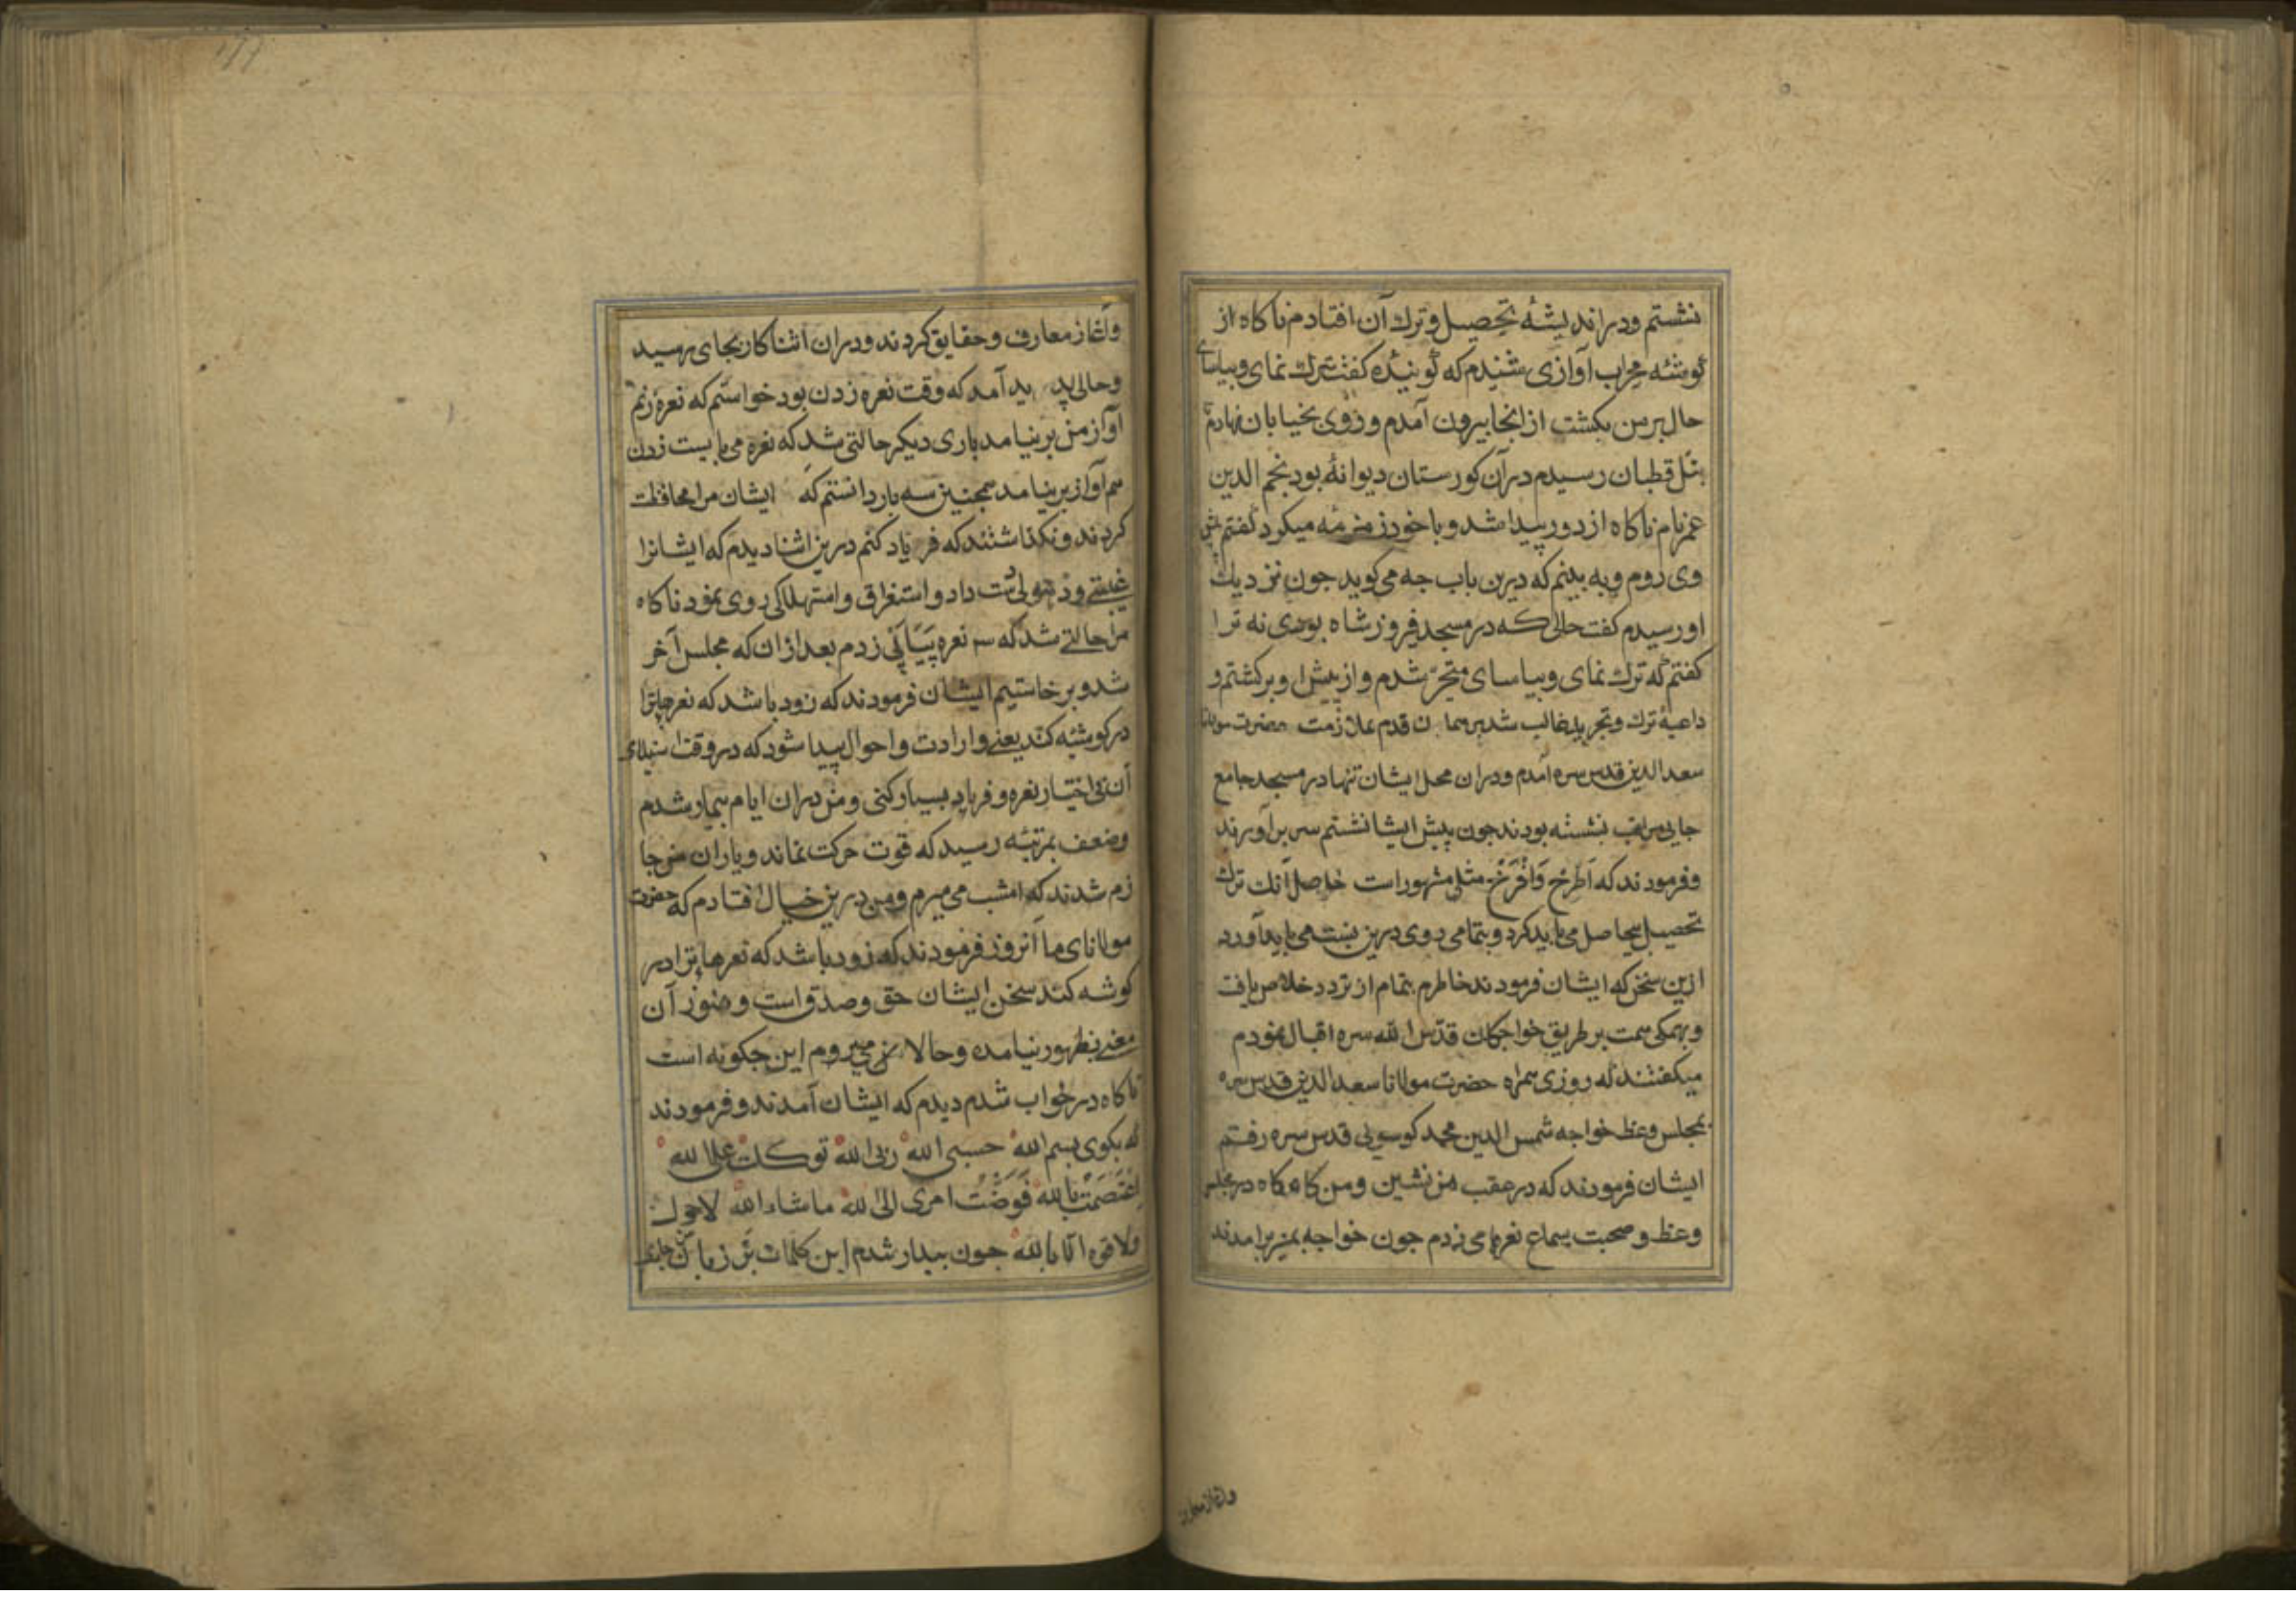 نشستم ودر اندیشهٔ تحصیل و ترك آن افتادم ناکاه از
کوشهٔ محراب آوازی شنیدم که کوینده کفت ترك نمای وبیاسای
حال بر من بکشت از انجا بیرون آمدم وروی بخیابان نهادم
بتل قطبان رسیدم در آن کورستان دیوانهٔ بود نجم الدین
عمر نام ناکاه از دور پیدا شد و با خود زمزمه میکرد کفتم پیش
وی روم و به بینم که درین باب جه می کوید جون نزدیك
او رسیدم کفت حالی که در مسجد فیروز شاه بودی نه ترا
کفتم که ترك نمای وبیاسای متحیر شدم و از پیش او بر کشتم و
داعیهٔ ترك وتجرید غالب شد بر همان قدم بملازمت حضرت مولانا
سعد الدین قدس سره آمدم ودران محل ایشان تنها در مسجد جامع
جایی مراقب نشسته بودند جون پیش ایشان نشستم سر بر آوردند
وفرمودند که اطرح وافرح مثلی مشهور است حاصل آنك ترك
تحصیل بیحاصل می باید کرد و بتمامی روی درین نسبت می باید آورد
ازین سخن که ایشان فرمودند خاطرم بتمام از تردد خلاص یافت
وبهمکی همت بر طریق خواجکان قدس الله سره اقبال نمودم
میکفتند که روزی همراه حضرت مولانا سعد الدین قدس سره
بمجلس وعظ خواجه شمس الدین محمد کوسویی قدس سره رفتم
ایشان فرمودند که در عقب من نشین ومن کاه کاه در مجلس
وعظ و صحبت سماع نعرها می زدم جون خواجه بمنبر برامدند
واغاز معارف
وآغاز معارف وحقایق کردند ودران اثنا کار بجای رسید
وحالی پدید آمد که وقت نعره زدن بود خواستم که نعره زنم
آواز من بر نیامد باری دیکر حالتی شد که نعره می بایست زدن
هم آواز بر نیامد همجنین سه بار دانستم که ایشان مرا محافظت
کردند و نکذاشتند که فریاد کنم درین اثنا دیدم که ایشانرا
غیبتی وذهولی دست داد و استغراق واستهلاکی روی نمود ناکاه
مرا حالتی شد که سه نعره پیاپی زدم بعد ازان که مجلس آخر
شد و بر خاستیم ایشان فرمودند که زود باشد که نعرها ترا
در کوشه کند یعنی واردات واحوال پیدا شود که در وقت استیلای
آن بی اختیار نعره و فریاد بسیار کنی ومن دران ایام بیمار شدم
وضعف بمرتبه رسید که قوت حرکت نماند ویاران من جا
زم شدند که امشب می میرم ومن درین خیال افتادم که حضرت
مولانای ما آنروز فرمودند که زود باشد که نعرها ترا در
کوشه کند سخن ایشان حق وصدق است وهنوز آن
معنی بظهور نیامده وحالا من می میروم این جکونه است
ناکاه در خواب شدم دیدم که ایشان آمدند و فرمودند
که بکوی بسم الله حسبی الله ربی الله توکلت علی الله
اعتصمت بالله فوضت امری الی الله ما شاء الله لا حول
ولا قوه الا بالله جون بیدار شدم این کلمات بر زبان جاری